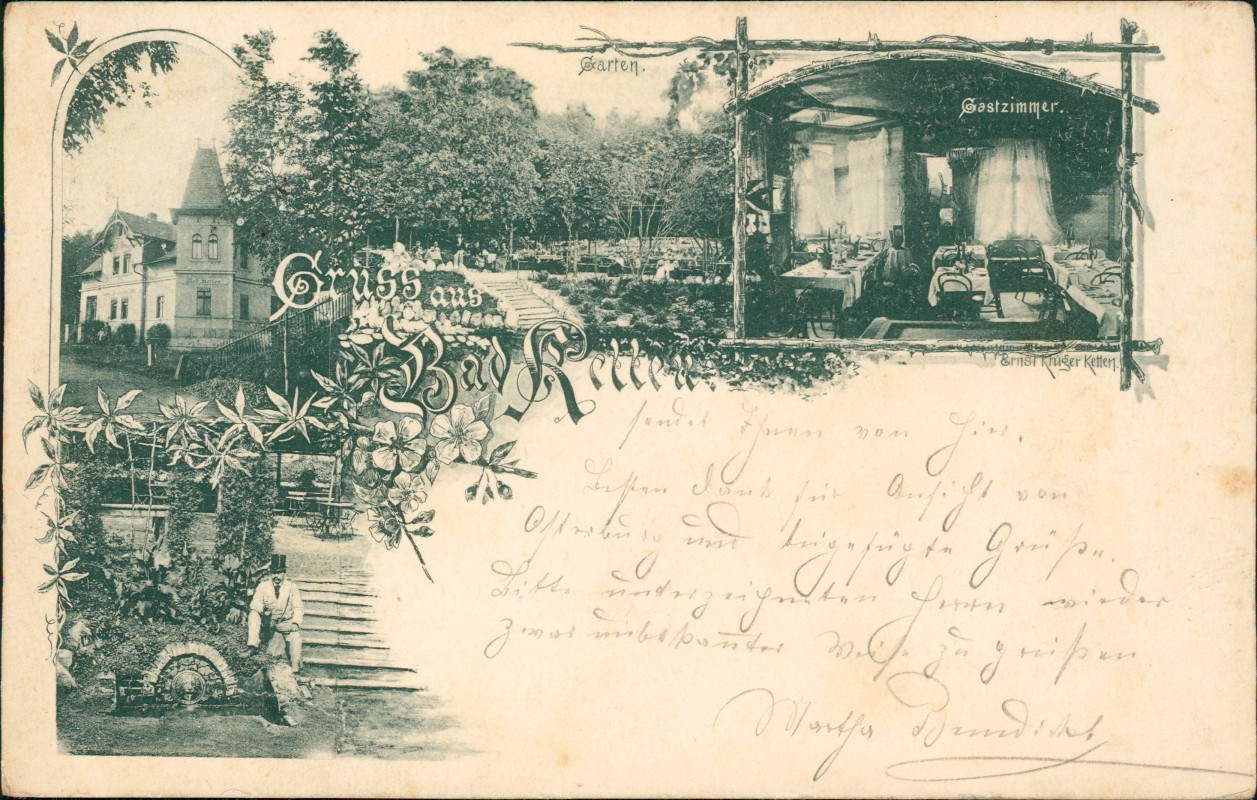 Garten.
Gastzimmer.
Gruss aus
Bad Ketten.
Ernst Krüger Ketten.
sendet Ihnen von hier.
Besten Dank für Ansicht von
Osterburg und beigefügte Grüße.
Bitte unterzeichneten Herrn wieder
zwar unbekannter Weise zu grüßen
Martha Benedickt